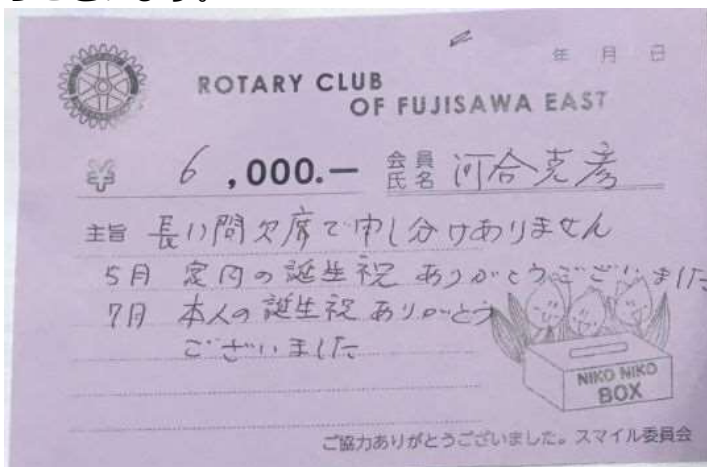 ございます。
年 月 日
ROTARY CLUB
OF FUJISAWA EAST
¥ 6,000.— 会員氏名 河合克彦
主旨 長い間欠席で申し分けありません
5月 定内の誕生祝 ありがとうございました
7月 本人の誕生祝 ありがとう
ございました
NIKO NIKO
BOX
ご協力ありがとうございました。スマイル委員会